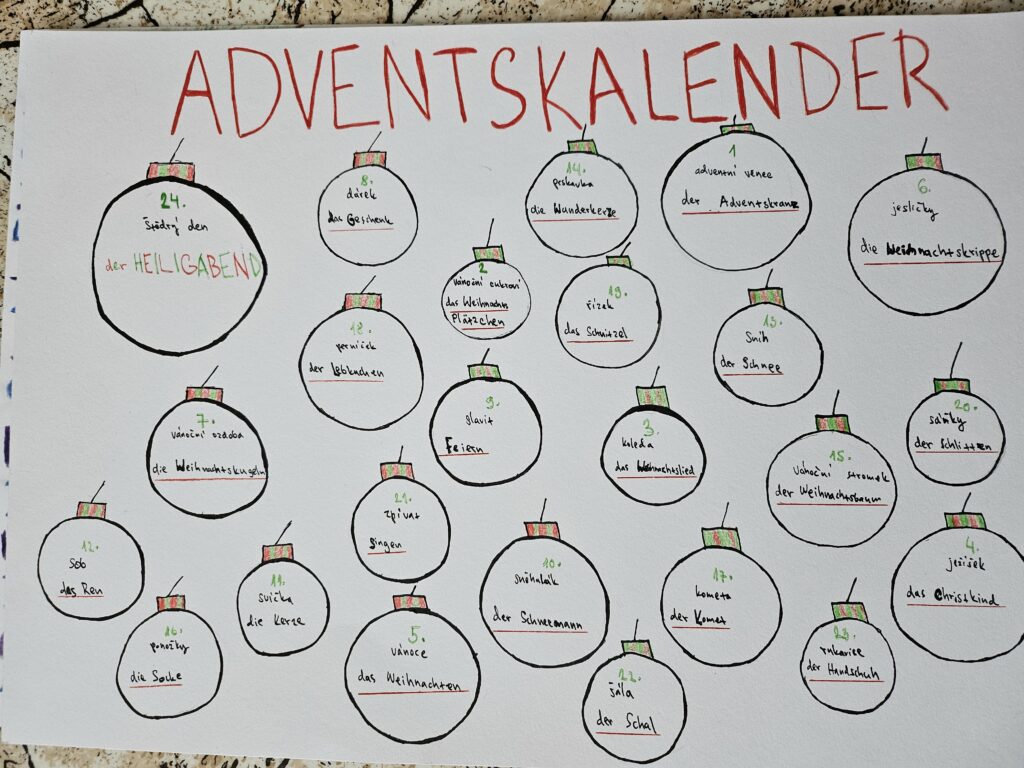 ADVENTSKALENDER
24.
Štědrý den
der HEILIGABEND
8.
dárek
das Geschenk
14.
prskavka
die Wunderkerze
1
adventní venec
der Adventskranz
6.
jesličky
die Weihnachtskrippe
2
vánoční cukroví
das Weihnachts
Plätzchen
19.
řízek
das Schnitzel
18.
perníček
der Lebkuchen
13.
Sníh
der Schnee
7.
vánoční ozdoba
die Weihnachtskugeln
9.
slavit
Feiern
3.
koleda
das Weihnachtslied
20.
sáňky
der Schlitten
15.
vánoční stromek
der Weihnachtsbaum
21.
zpívat
Singen
12.
sob
das Ren
11.
svíčka
die Kerze
10.
sněhulák
der Schneemann
17.
kometa
der Komet
4.
ježíšek
das Christkind
16.
ponožky
die Socke
5.
vánoce
das Weihnachten
22.
šála
der Schal
23.
rukavice
der Handschuh